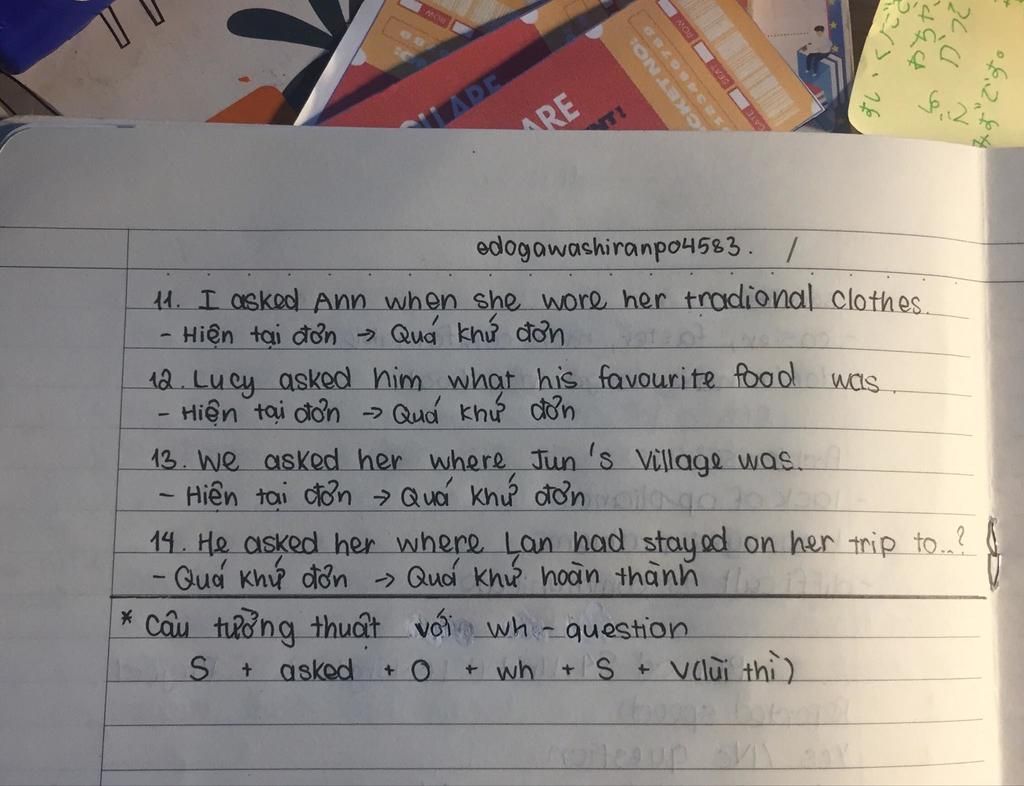 SQUARE
ARE
ROW
ROW
SEAT
edogawashiranpo4583. /
11. I asked Ann when she wore her tradional clothes.
- Hiện tại đơn → Quá khứ đơn
12. Lucy asked him what his favourite food was.
- Hiện tại đơn → Quá khứ đơn
13. We asked her where Jun's Village was.
- Hiện tại đơn → Quá khứ đơn
14. He asked her where Lan had stayed on her trip to..?
- Quá khứ đơn → Quá khứ hoàn thành
* Câu tường thuật với wh - question
S + asked + O + wh + S + V(lùi thì)